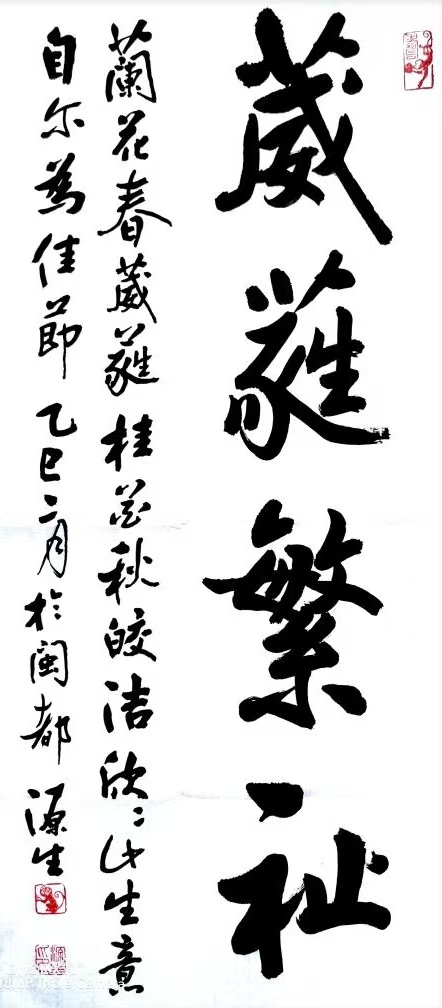 葳蕤繁祉
蘭花春葳蕤桂花秋皎洁欣〻此生意
自尔為佳節乙巳二月於閩都源生